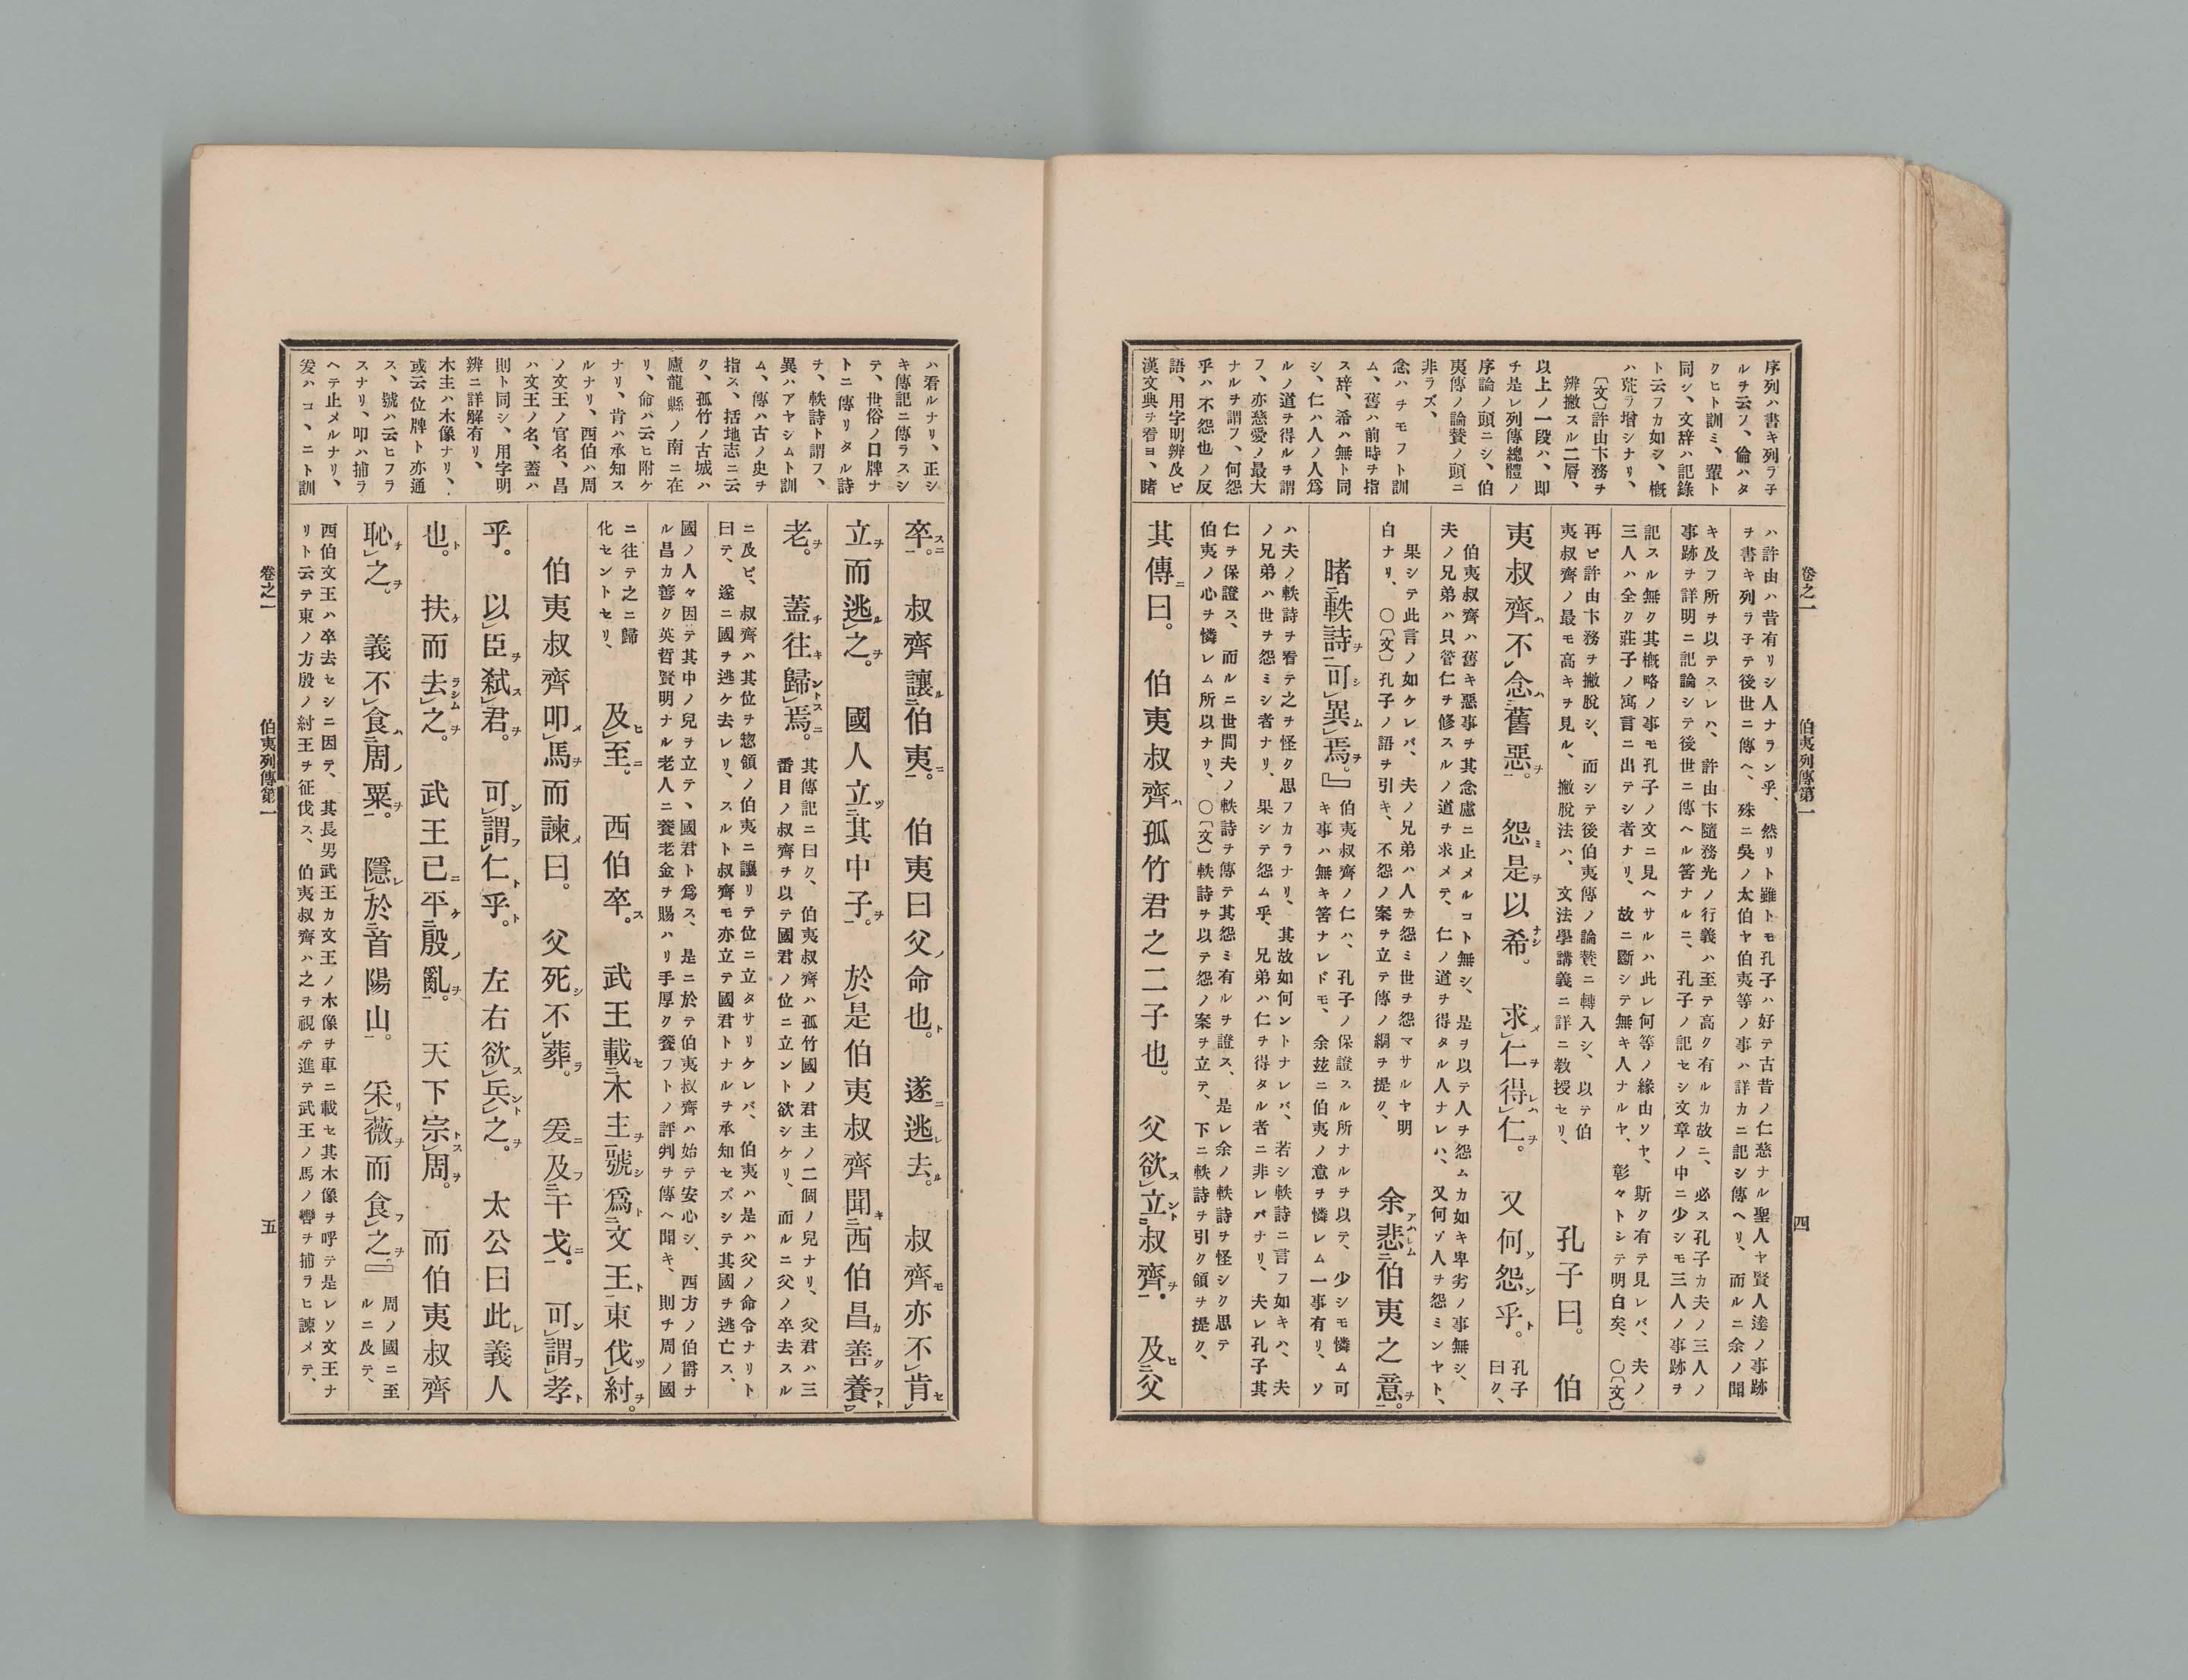 卷之一　伯夷列傳第一　四
序列ハ書キ列ラ子
ルヲ云フ、倫ハタ
クヒト訓ミ、輩ト
同シ、文辞ハ記錄
ト云フカ如シ、概
ハ荒ラ增シナリ、
〔文〕許由卞務ヲ
辨撇スル二層、
以上ノ一段ハ、即
チ是レ列傳總體ノ
序論ノ頭ニシ、伯
夷傳ノ論賛ノ頭ニ
非ラズ、
念ハヲモフト訓
ム、舊ハ前時ヲ指
ス辞、希ハ無ト同
シ、仁ハ人ノ人爲
ルノ道ヲ得ルヲ謂
フ、亦慈愛ノ最大
ナルヲ謂フ、何怨
乎ハ不怨也ノ反
語、用字明辨及ビ
漢文典ヲ看ヨ、睹
ハ許由ハ昔有リシ人ナラン乎、然リト雖トモ孔子ハ好テ古昔ノ仁慈ナル聖人ヤ賢人逹ノ事跡
ヲ書キ列ラ子テ後世ニ傳ヘ、殊ニ吳ノ太伯ヤ伯夷等ノ事ハ詳カニ記シ傳ヘリ、而ルニ余ノ聞
キ及フ所ヲ以テスレハ、許由卞隨務光ノ行義ハ至テ高ク有ルカ故ニ、必ス孔子カ夫ノ三人ノ
事跡ヲ詳明ニ記論シテ後世ニ傳ヘル筈ナルニ、孔子ノ記セシ文章ノ中ニ少シモ三人ノ事跡ヲ
記スル無ク其概略ノ事モ孔子ノ文ニ見ヘサルハ此レ何等ノ緣由ソヤ、斯ク有テ見レバ、夫ノ
三人ハ全ク莊子ノ寓言ニ出テシ者ナリ、故ニ斷シテ無キ人ナルヤ、彰々トシテ明白矣、〇〔文〕
再ビ許由卞務ヲ撇脫シ、而シテ後伯夷傳ノ論賛ニ轉入シ、以テ伯
夷叔齊ノ最モ高キヲ見ル、撇脫法ハ、文法學講義ニ詳ニ敎授セリ、
孔子曰。伯
夷叔齊不念舊惡。怨是以希。求仁得仁。又何怨乎。孔子曰ク、
伯夷叔齊ハ舊キ惡事ヲ其念慮ニ止メルコト無シ、是ヲ以テ人ヲ怨ムカ如キ卑劣ノ事無シ、
夫ノ兄弟ハ只管仁ヲ修スルノ道ヲ求メテ、仁ノ道ヲ得タル人ナレハ、又何ゾ人ヲ怨ミンヤト、
果シテ此言ノ如ケレバ、夫ノ兄弟ハ人ヲ怨ミ世ヲ怨マサルヤ明
白ナリ、〇〔文〕孔子ノ語ヲ引キ、不怨ノ案ヲ立テ傳ノ綱ヲ提ク、
余悲伯夷之意。
睹軼詩可異焉。』伯夷叔齊ノ仁ハ、孔子ノ保證スル所ナルヲ以テ、少シモ憐ム可
キ事ハ無キ筈ナレドモ、余玆ニ伯夷ノ意ヲ憐レム一事有リ、ソ
ハ夫ノ軼詩ヲ看テ之ヲ怪ク思フカラナリ、其故如何ントナレバ、若シ軼詩ニ言フ如キハ、夫
ノ兄弟ハ世ヲ怨ミシ者ナリ、果シテ怨ム乎、兄弟ハ仁ヲ得タル者ニ非レバナリ、夫レ孔子其
仁ヲ保證ス、而ルニ世間夫ノ軼詩ヲ傳テ其怨ミ有ルヲ證ス、是レ余ノ軼詩ヲ怪シク思テ
伯夷ノ心ヲ憐レム所以ナリ、〇〔文〕軼詩ヲ以テ怨ノ案ヲ立テ、下ニ軼詩ヲ引ク領ヲ提ク、
其傳曰。伯夷叔齊孤竹君之二子也。父欲立叔齊。及父
ハ看ルナリ、正シ
キ傳記ニ傳ラスシ
テ、世俗ノ口牌ナ
トニ傳リタル詩
ヲ、軼詩ト謂フ、
異ハアヤシムト訓
ム、傳ハ古ノ史ヲ
指ス、括地志ニ云
ク、孤竹ノ古城ハ
盧龍縣ノ南ニ在
リ、命ハ云ヒ附ケ
ナリ、肯ハ承知ス
ルナリ、西伯ハ周
ノ文王ノ官名、昌
ハ文王ノ名、蓋ハ
則ト同シ、用字明
辨ニ詳解有リ、
木主ハ木像ナリ、
或云位牌ト亦通
ス、號ハ云ヒフラ
スナリ、叩ハ捕ラ
ヘテ止メルナリ、
爰ハコヽニト訓
卒。叔齊讓伯夷。伯夷曰父命也。遂逃去。叔齊亦不肯
立而逃之。國人立其中子。於是伯夷叔齊聞西伯昌善養
老。蓋往歸焉。其傳記ニ曰ク、伯夷叔齊ハ孤竹國ノ君主ノ二個ノ兒ナリ、父君ハ三
番目ノ叔齊ヲ以テ國君ノ位ニ立ント欲シケリ、而ルニ父ノ卒去スル
ニ及ビ、叔齊ハ其位ヲ惣領ノ伯夷ニ讓リテ位ニ立タサリケレバ、伯夷ハ是ハ父ノ命令ナリト
曰テ、遂ニ國ヲ逃ケ去レリ、スルト叔齊モ亦立テ國君トナルヲ承知セズシテ其國ヲ逃亡ス、
國ノ人々因テ其中ノ兒ヲ立テヽ國君ト爲ス、是ニ於テ伯夷叔齊ハ始テ安心シ、西方ノ伯爵ナ
ル昌カ善ク英哲賢明ナル老人ニ養老金ヲ賜ハリ手厚ク養フトノ評判ヲ傳ヘ聞キ、則チ周ノ國
ニ往テ之ニ歸
化セントセリ、
及至。西伯卒。武王載木主號爲文王東伐紂。
伯夷叔齊叩馬而諫曰。父死不葬。爰及干戈。可謂孝
乎。以臣弑君。可謂仁乎。左右欲兵之。太公曰此義人
也。扶而去之。武王已平殷亂。天下宗周。而伯夷叔齊
恥之。義不食周粟。隱於首陽山。采薇而食之。』周ノ國ニ至
ルニ及テ、
西伯文王ハ卒去セシニ因テ、其長男武王カ文王ノ木像ヲ車ニ載セ其木像ヲ呼テ是レソ文王ナ
リト云テ東ノ方殷ノ紂王ヲ征伐ス、伯夷叔齊ハ之ヲ視テ進テ武王ノ馬ノ轡ヲ捕ラヒ諫メテ、
卷之一　伯夷列傳第一　五